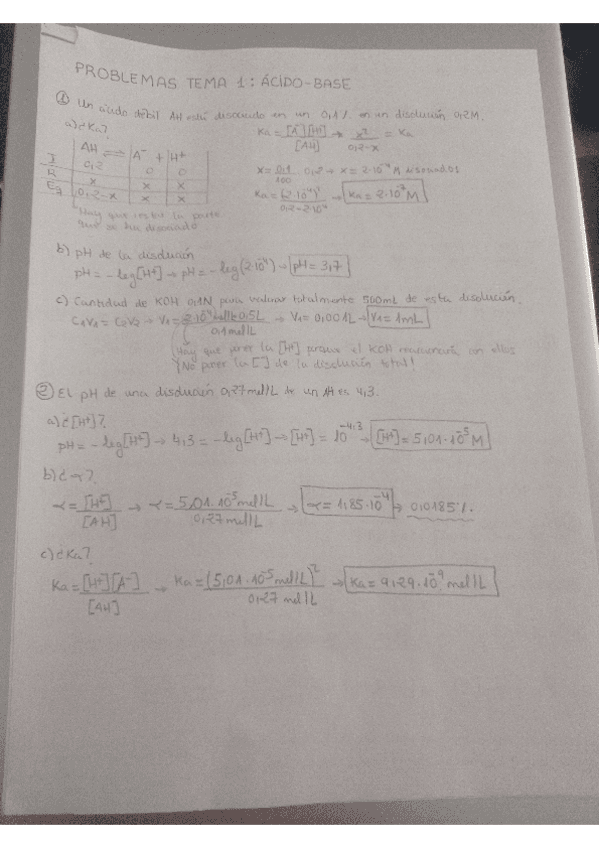 PROBLEMAS TEMA 1: ÁCIDO-BASE
① Un ácido débil AH está disociado en un 0,1% en un disolución 0,2M.
a) ¿Ka?
Ka = [A⁻][H⁺] / [AH] → x² / 0,2-x = Ka
AH ⇌ A⁻ + H⁺
I 0,2 0 0
R x x x
Eq 0,2-x x x
x = 0,1/100 · 0,2 → x = 2·10⁻⁴ M disociados
Ka = (2·10⁻⁴)² / 0,2-2·10⁻⁴ → Ka = 2·10⁻⁷ M
Hay que restar la parte
que se ha disociado
b) pH de la disolución
pH = -log[H⁺] → pH = -log(2·10⁻⁴) → pH = 3,7
c) Cantidad de KOH 0,1N para valorar totalmente 500mL de esta disolución.
C₁V₁ = C₂V₂ → V₁ = 2·10⁻⁴ mol/L · 0,5L / 0,1 mol/L → V₁ = 0,001L → V₁ = 1mL
Hay que poner la [H⁺] porque el KOH reaccionará con ellos
¡No poner la [ ] de la disolución total!
② El pH de una disolución 0,27 mol/L de un AH es 4,3.
a) ¿[H⁺]?
pH = -log[H⁺] → 4,3 = -log[H⁺] → [H⁺] = 10⁻⁴,³ → [H⁺] = 5,01·10⁻⁵ M
b) ¿α?
α = [H⁺] / [AH] → α = 5,01·10⁻⁵ mol/L / 0,27 mol/L → α = 1,85·10⁻⁴ → 0,0185%
c) ¿Ka?
Ka = [H⁺][A⁻] / [AH] → Ka = (5,01·10⁻⁵ mol/L)² / 0,27 mol/L → Ka = 9,29·10⁻⁹ mol/L